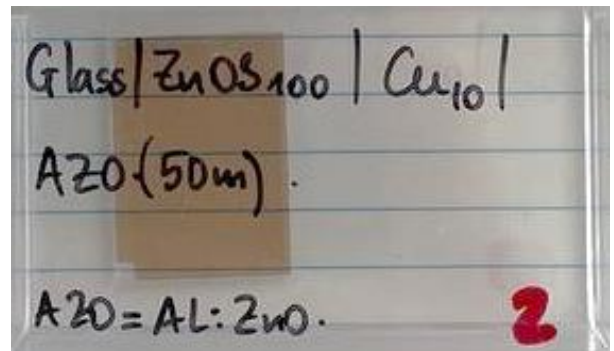 Glass|ZnOS₁₀₀|Cu₁₀|
AZO(50m).
AZO=AL:ZnO.
2